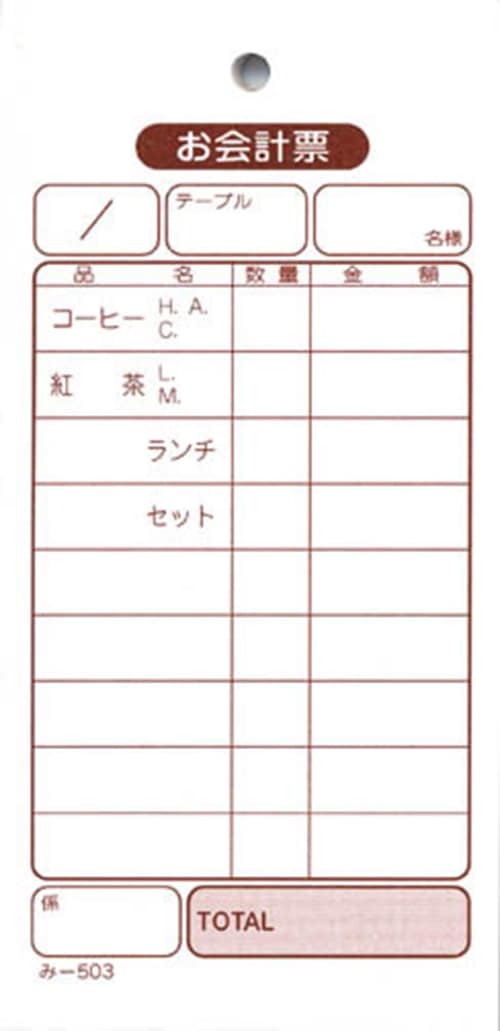 お会計票
／ テーブル 名様
品 名 数 量 金 額
コーヒー H. A.
C.
紅 茶 L.
M.
ランチ
セット
係 TOTAL
み－503